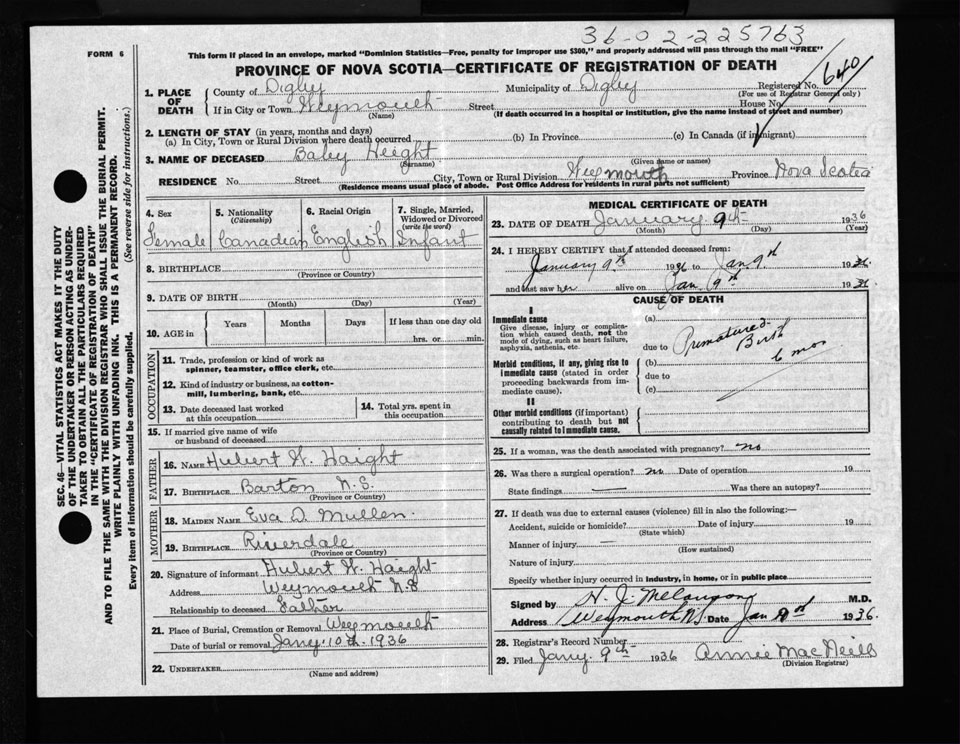 36-02-225763
FORM 6
This form if placed in an envelope, marked "Dominion Statistics—Free, penalty for improper use $300," and properly addressed will pass through the mail "FREE"
PROVINCE OF NOVA SCOTIA—CERTIFICATE OF REGISTRATION OF DEATH
1. PLACE OF DEATH
County of Digby Municipality of Digby Registered No. 640
(For use of Registrar General only)
If in City or Town Weymouth Street House No.
(Name) (If death occurred in a hospital or institution, give the name instead of street and number)
2. LENGTH OF STAY (in years, months and days)
(a) In City, Town or Rural Division where death occurred (b) In Province (c) In Canada (if immigrant)
3. NAME OF DECEASED Baby Height
(Surname) (Given name or names)
RESIDENCE No. Street City, Town or Rural Division Weymouth Province Nova Scotia
(Residence means usual place of abode. Post Office Address for residents in rural parts not sufficient)
4. Sex
Female
5. Nationality
(Citizenship)
Canadian
6. Racial Origin
English
7. Single, Married,
Widowed or Divorced
(write the word)
Infant
8. BIRTHPLACE
(Province or Country)
9. DATE OF BIRTH
(Month) (Day) (Year)
10. AGE in
Years Months Days If less than one day old
hrs. or min.
OCCUPATION
11. Trade, profession or kind of work as
spinner, teamster, office clerk, etc.
12. Kind of industry or business, as cotton-
mill, lumbering, bank, etc.
13. Date deceased last worked
at this occupation
14. Total yrs. spent in
this occupation
15. If married give name of wife
or husband of deceased
FATHER
16. NAME Hubert W. Haight
17. BIRTHPLACE Barton N.S.
(Province or Country)
MOTHER
18. MAIDEN NAME Eva D. Mullen.
19. BIRTHPLACE Riverdale
(Province or Country)
20. Signature of informant Hubert W. Haight
Address Weymouth N.S
Relationship to deceased Father
21. Place of Burial, Cremation or Removal Weymouth
Date of burial or removal Jany. 10th 1936
22. UNDERTAKER
(Name and address)
MEDICAL CERTIFICATE OF DEATH
23. DATE OF DEATH January 9th 1936
(Month) (Day) (Year)
24. I HEREBY CERTIFY that I attended deceased from:
January 9th 1936 to Jan 9th 1936
and last saw her alive on Jan. 9th 1936
CAUSE OF DEATH
I
Immediate cause
Give disease, injury or complica-
tion which caused death, not the
mode of dying, such as heart failure,
asphyxia, asthenia, etc.
(a)
due to Premature Birth
6 mos
Morbid conditions, if any, giving rise to
immediate cause (stated in order
proceeding backwards from im-
mediate cause).
(b)
due to
(c)
II
Other morbid conditions (if important)
contributing to death but not
causally related to immediate cause.
25. If a woman, was the death associated with pregnancy? no
26. Was there a surgical operation? no Date of operation 19
State findings — Was there an autopsy?
27. If death was due to external causes (violence) fill in also the following:—
Accident, suicide or homicide? Date of injury 19
(State which)
Manner of injury —
(How sustained)
Nature of injury
Specify whether injury occurred in industry, in home, or in public place
Signed by H. J. Melanson M.D.
Address Weymouth N.S. Date Jan 1936.
28. Registrar's Record Number
29. Filed Jany. 9th 1936 Annie MacNeill
(Division Registrar)
SEC. 46—VITAL STATISTICS ACT MAKES IT THE DUTY
OF THE UNDERTAKER OR PERSON ACTING AS UNDER-
TAKER TO OBTAIN ALL THE PARTICULARS REQUIRED
IN THE "CERTIFICATE OF REGISTRATION OF DEATH"
AND TO FILE THE SAME WITH THE DIVISION REGISTRAR WHO SHALL ISSUE THE BURIAL PERMIT.
WRITE PLAINLY WITH UNFADING INK. THIS IS A PERMANENT RECORD.
Every item of information should be carefully supplied. (See reverse side for instructions.)